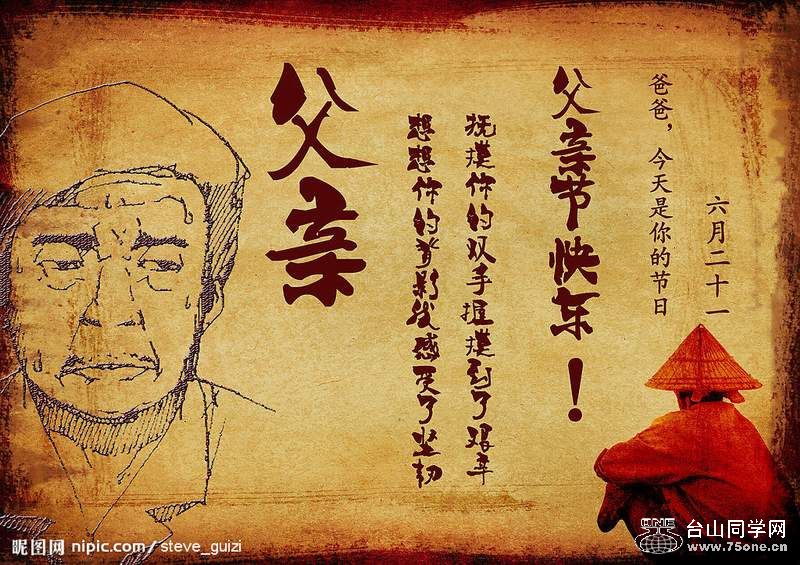 六月二十一
爸爸，今天是你的节日
父亲节快乐！
抚摸你的双手握摸到了艰辛
想想你的背影我感受了坚韧
父亲
昵图网 nipic.com/steve_guizi
台山同学网
www.75one.cn